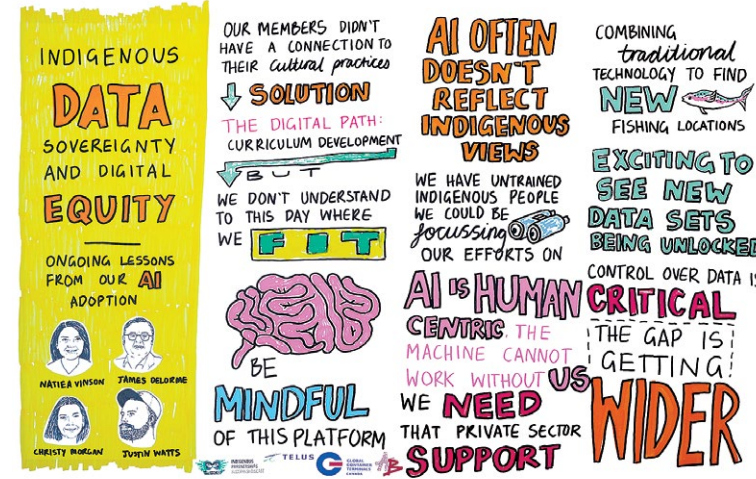 INDIGENOUS
DATA
SOVEREIGNTY
AND DIGITAL
EQUITY
ONGOING LESSONS
FROM OUR AI
ADOPTION
NATIEA VINSON
JAMES DELORME
CHRISTY MORGAN
JUSTIN WATTS
OUR MEMBERS DIDN'T
HAVE A CONNECTION TO
THEIR cultural practices
SOLUTION
THE DIGITAL PATH:
CURRICULUM DEVELOPMENT
BUT
WE DON'T UNDERSTAND
TO THIS DAY WHERE
WE FIT
BE
MINDFUL
OF THIS PLATFORM
AI OFTEN
DOESN'T
REFLECT
INDIGENOUS
VIEWS
WE HAVE UNTRAINED
INDIGENOUS PEOPLE
WE COULD BE
focussing
OUR EFFORTS ON
AI IS HUMAN
CENTRIC. THE
MACHINE CANNOT
WORK WITHOUT US
WE NEED
THAT PRIVATE SECTOR
SUPPORT
COMBINING
traditional
TECHNOLOGY TO FIND
NEW
FISHING LOCATIONS
EXCITING TO
SEE NEW
DATA SETS
BEING UNLOCKED
CONTROL OVER DATA IS
CRITICAL
THE GAP IS
GETTING
WIDER
TELUS
GLOBAL
CONTAINER
TERMINALS
CANADA
AB